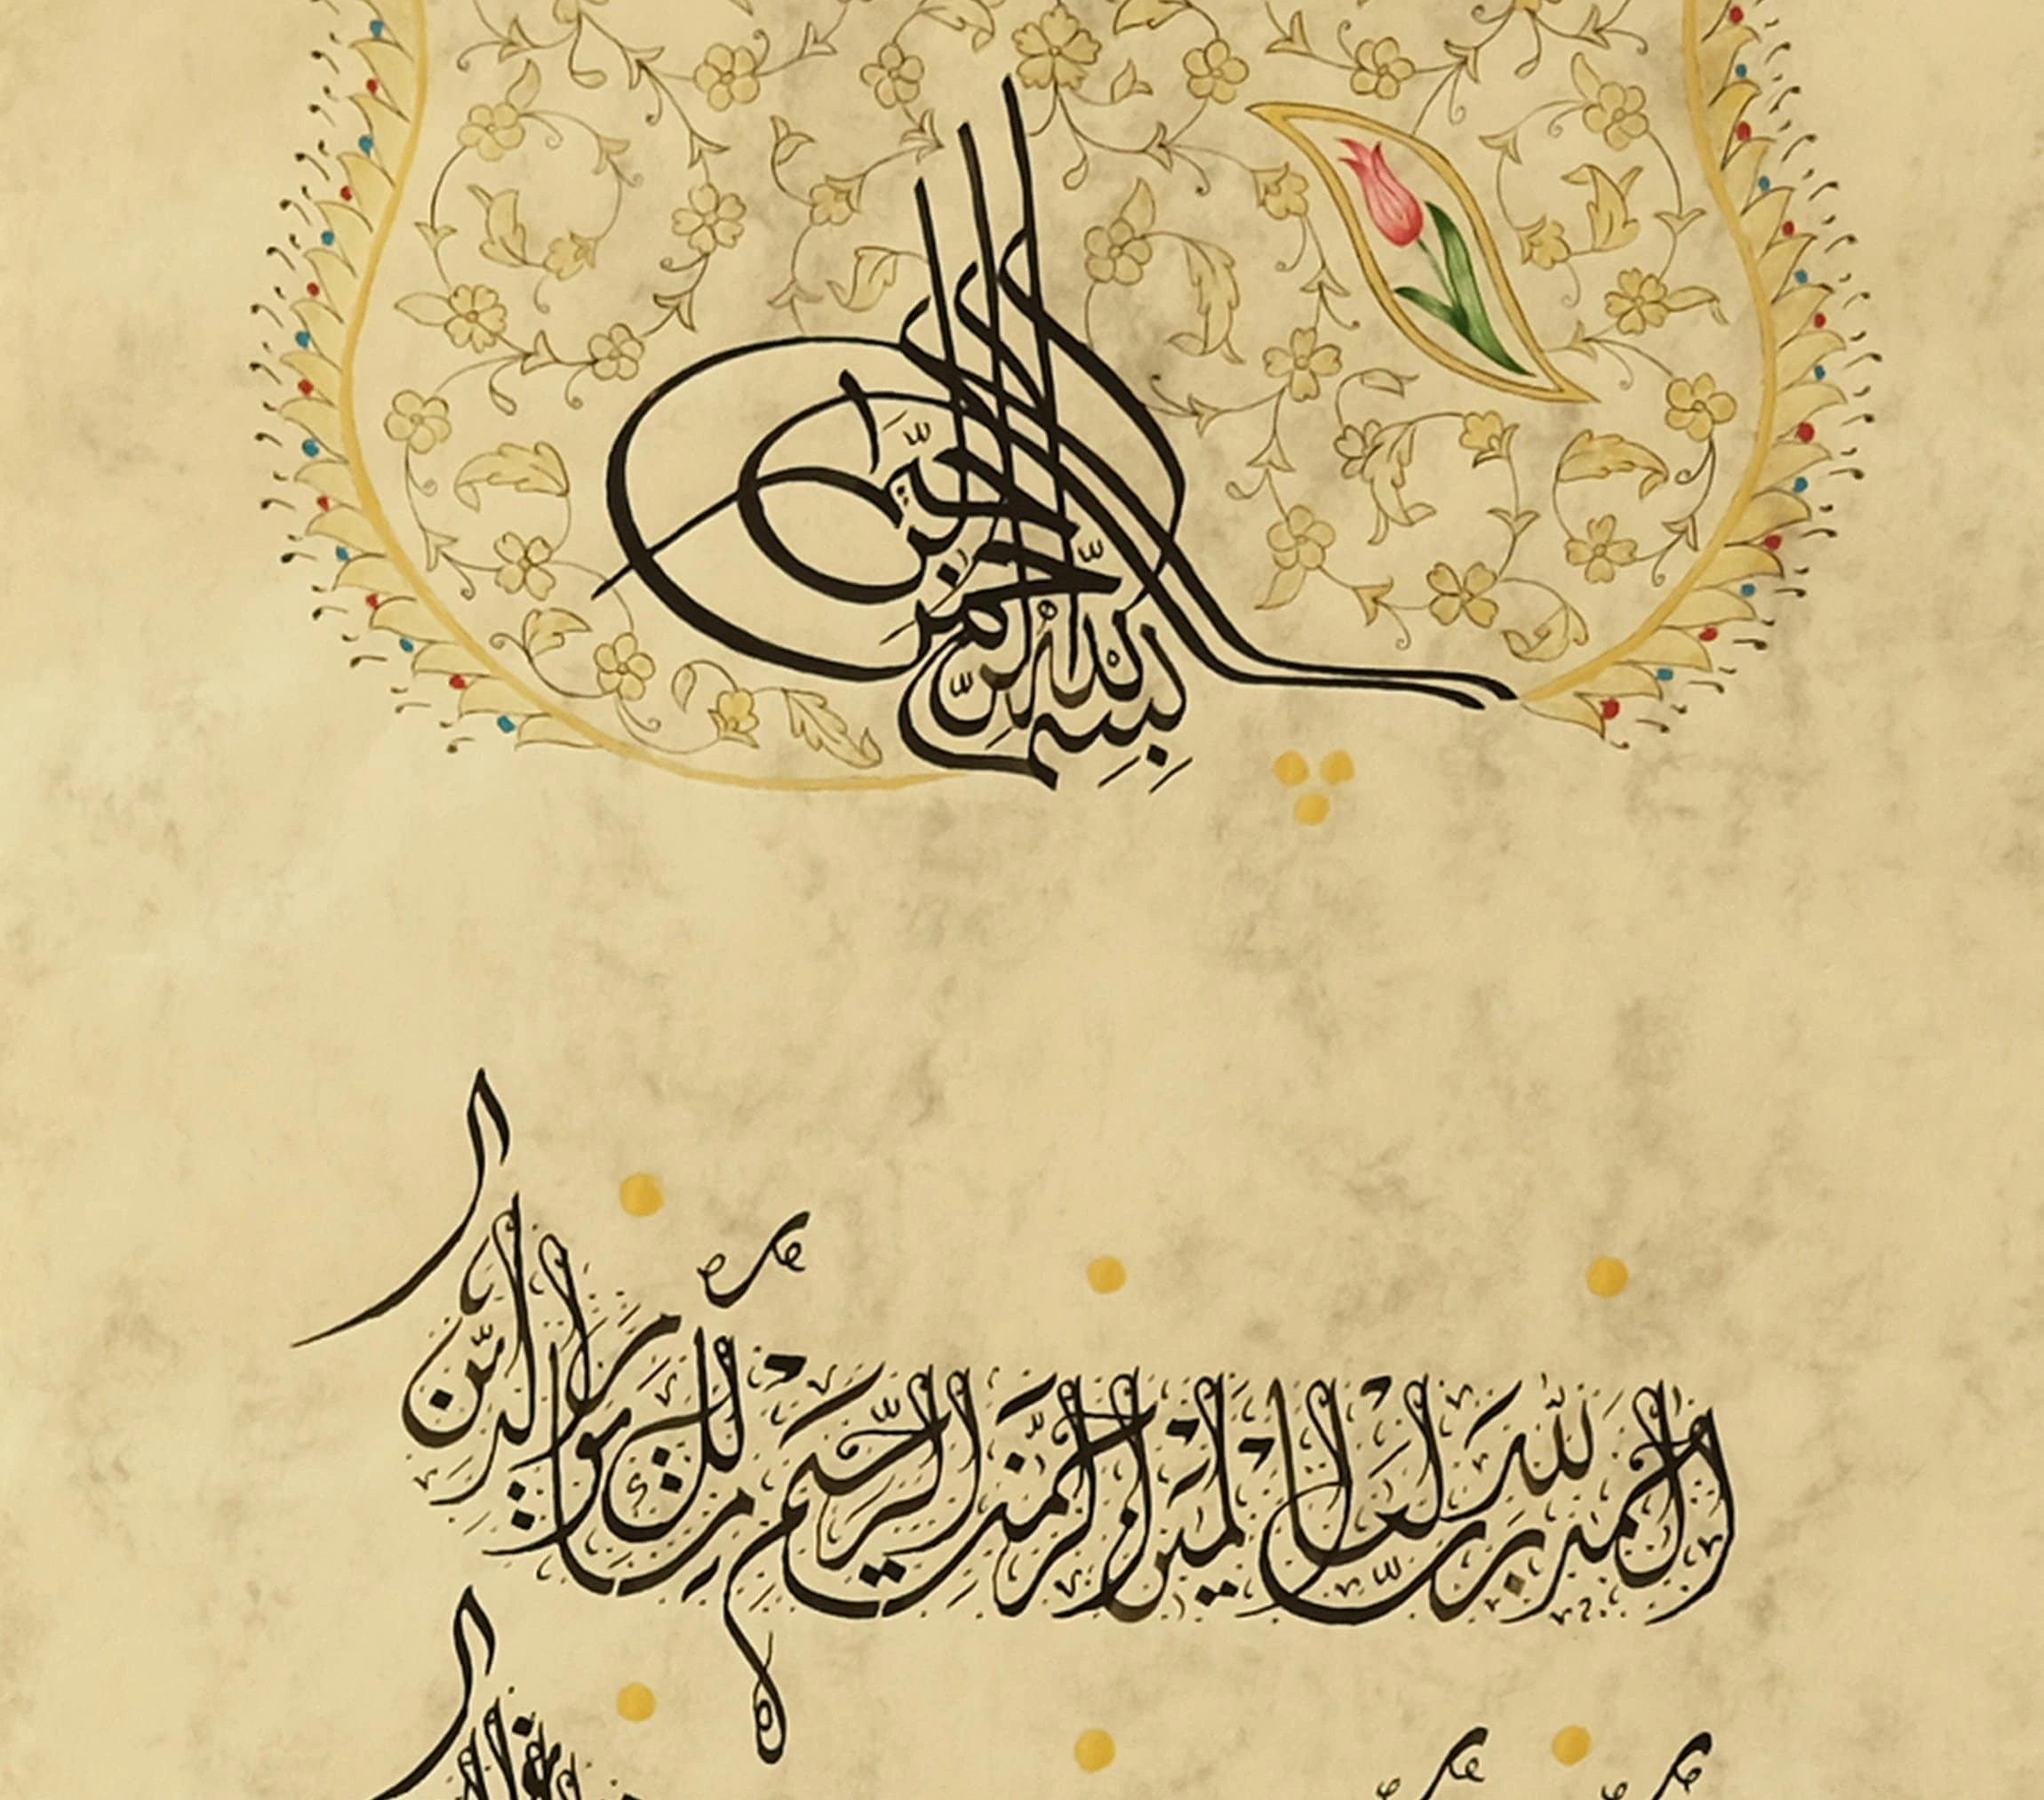 بِسْمِ اللّٰهِ الرَّحْمٰنِ الرَّحِيمِ
اَلْحَمْدُ لِلّٰهِ رَبِّ الْعَالَمِينَ الرَّحْمٰنِ الرَّحِيمِ مَالِكِ يَوْمِ الدِّينِ